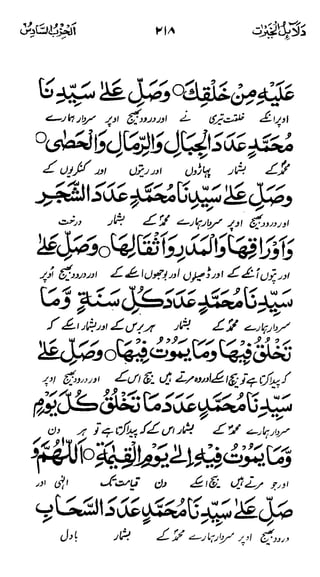 دلائل الخیرات ۲۱۸ الحزب السادس
عَلَيْهِ مِنْ خَلْقِكَ ○ وَصَلِّ عَلىٰ سَيِّدِنَا
اوپر انکے خلقت تیری نے اور درود بھیج اوپر سردار ہمارے
مُحَمَّدٍ عَدَدَ الْجِبَالِ وَالرِّمَالِ وَالْحَصٰى ○
محمدؐ کے بشمار پہاڑوں اور ریتوں اور کنکریوں کے
وَصَلِّ عَلىٰ سَيِّدِنَا مُحَمَّدٍ عَدَدَ الشَّجَرِ
اور درود بھیج اوپر سردار ہمارے محمدؐ کے بشمار درخت
وَاَوْرَاقِهَا وَالْمَدَرِ وَاَثْقَالِهَا ○ وَصَلِّ عَلىٰ
اور پتوں انکے کے اور ڈھیلوں اور بوجھوں اسکے کے اور درود بھیج اوپر
سَيِّدِنَا مُحَمَّدٍ عَدَدَ كُلِّ سَنَةٍ وَّمَا
سردار ہمارے محمدؐ کے بشمار ہر برس کے اور بشمار اسکے کہ
تَخْلُقُ فِيهَا وَمَا يَمُوْتُ فِيهَا ○ وَصَلِّ عَلىٰ
کہ پیدا کرتا ہے تو بیچ اسکے اور وہ مرتے ہیں بیچ اس کے اور درود بھیج اوپر
سَيِّدِنَا مُحَمَّدٍ عَدَدَ مَا تَخْلُقُ كُلَّ يَوْمٍ
سردار ہمارے محمدؐ کے بشمار اس کے کہ پیدا کرتا ہے تو ہر دن
وَّمَا يَمُوْتُ فِيْهِ اِلىٰ يَوْمِ الْقِيٰمَةِ ○ اَللّٰهُمَّ وَ
اور جو مرتے ہیں بیچ اسکے دن قیامت تک الٰہی اور
صَلِّ عَلىٰ سَيِّدِنَا مُحَمَّدٍ عَدَدَ السَّحَابِ
درود بھیج اوپر سردار ہمارے محمدؐ کے بشمار بادل